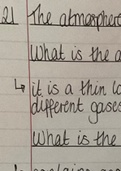 21 The atmosphere
What is the a
↳ it is a thin la
different gases
What is the